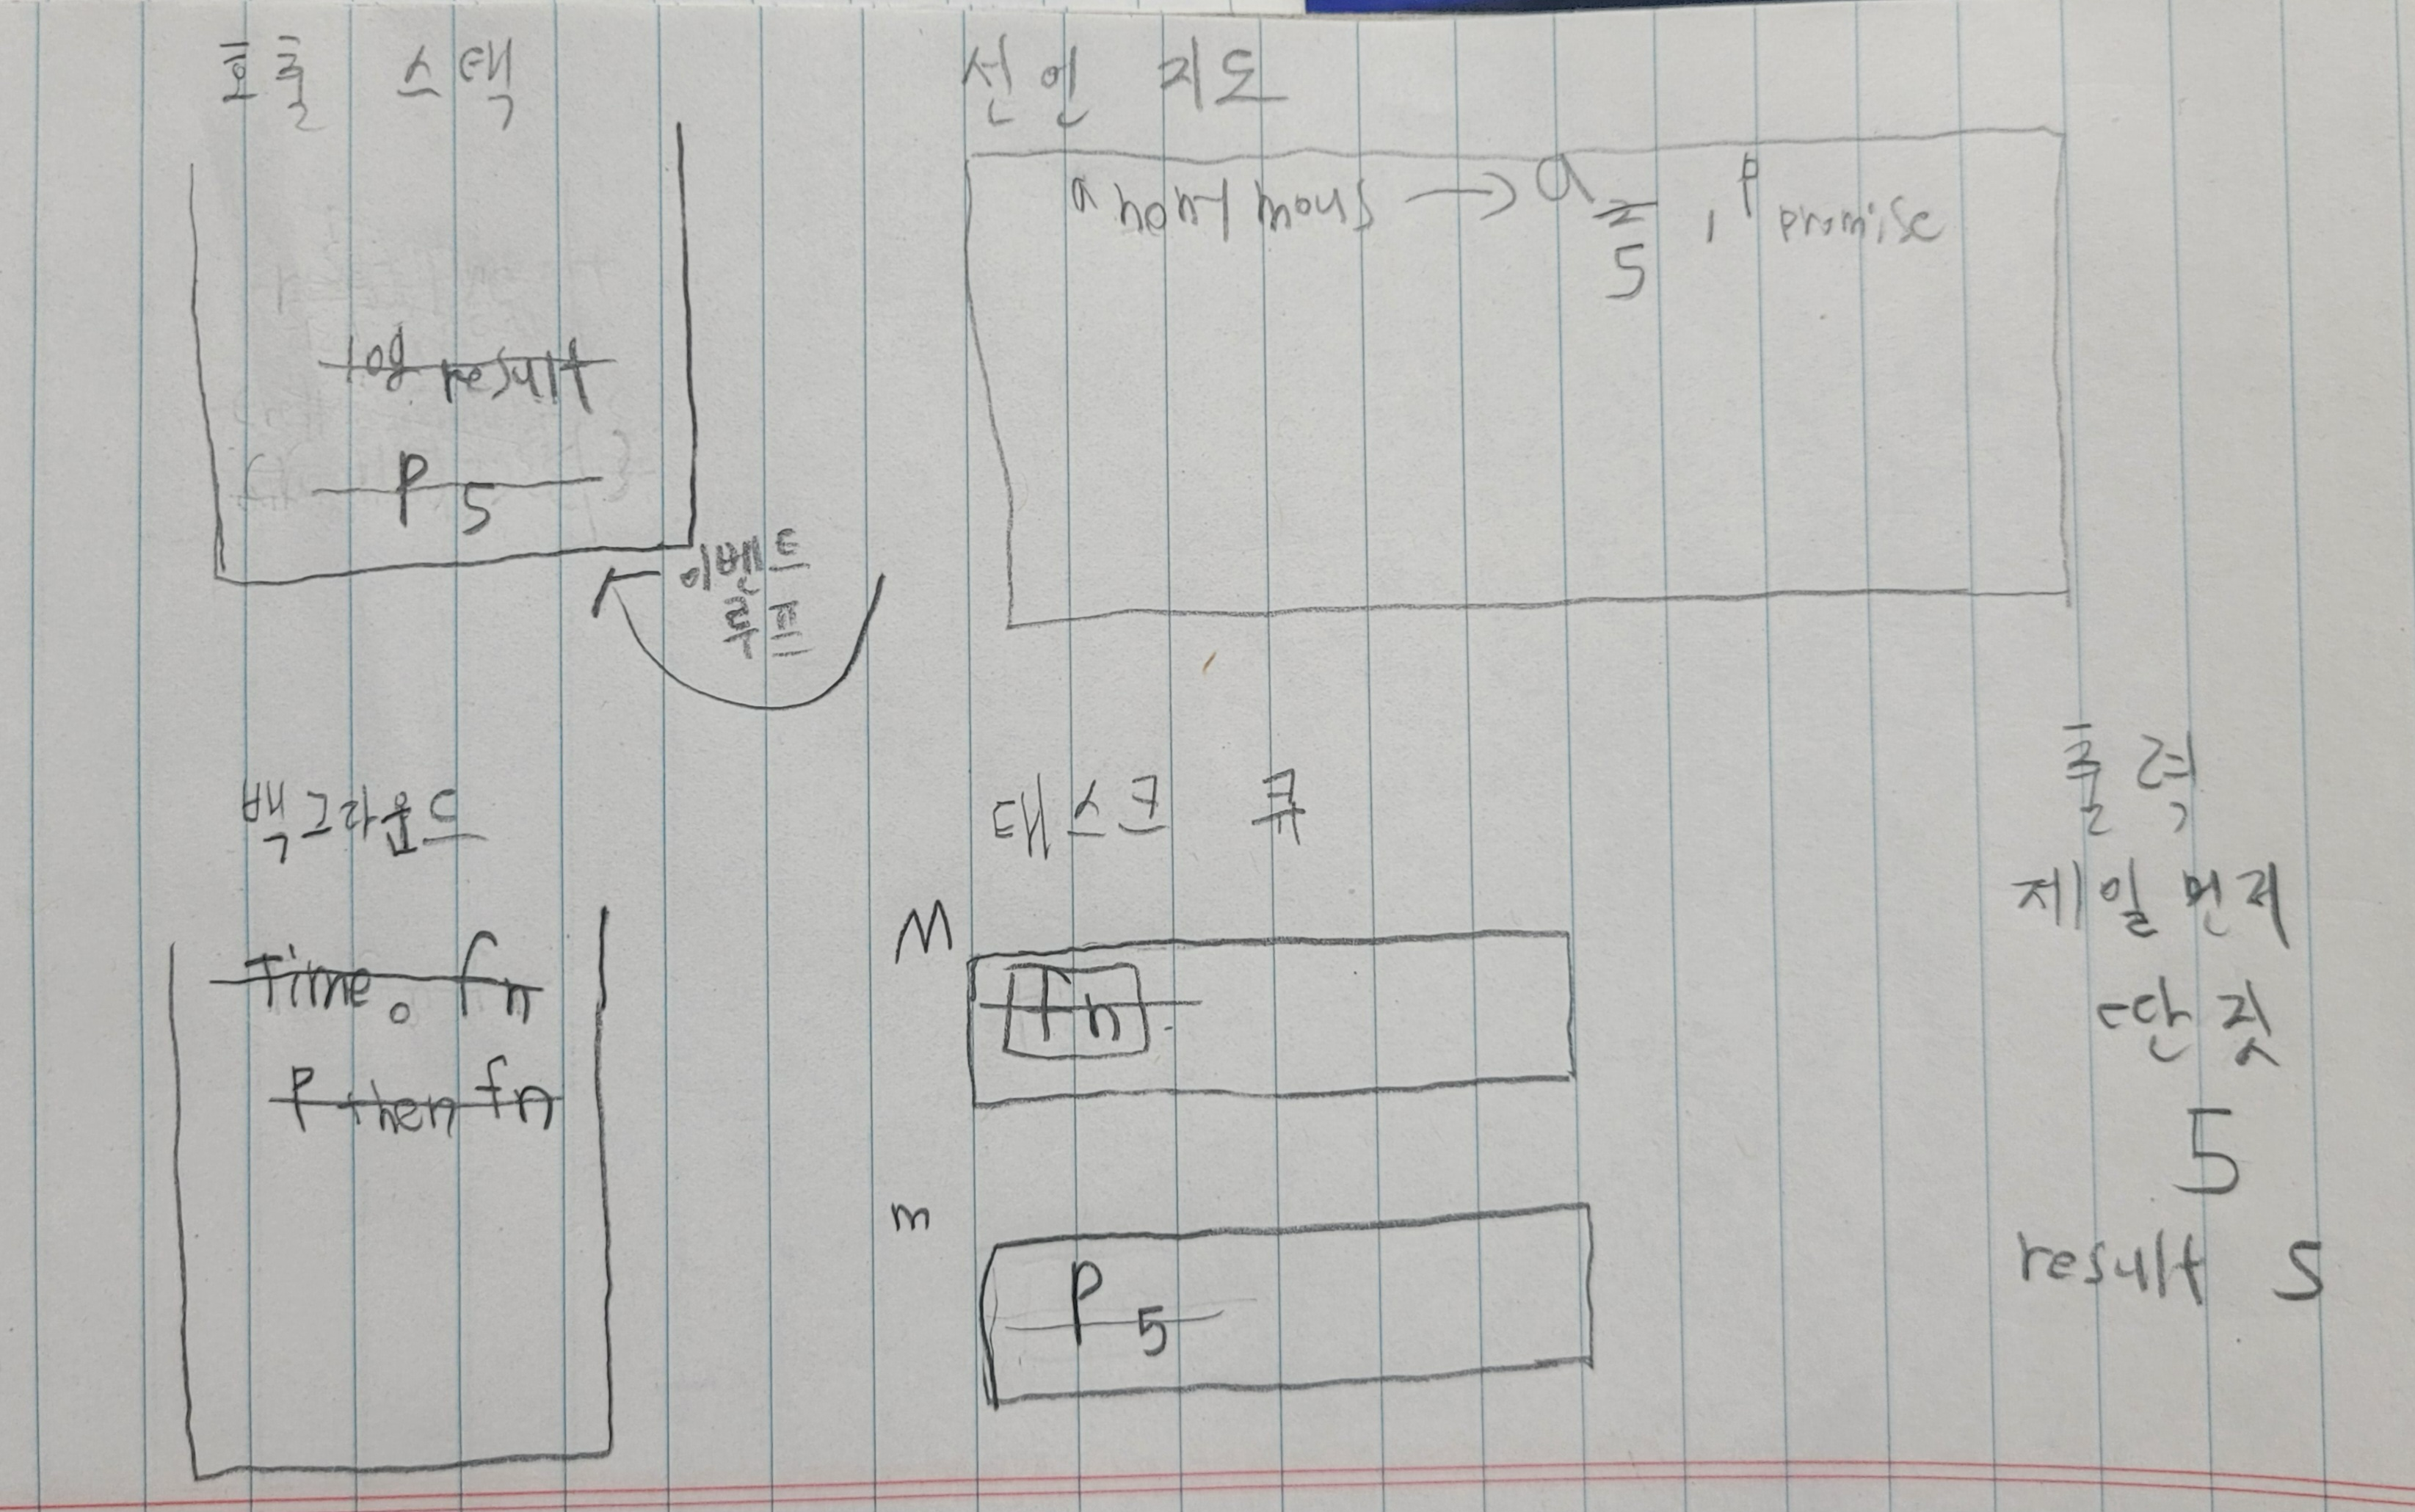 호출 스택
log result
P 5
이벤트
루프
선언 지도
anonymous → a 2 , P promise
5
백그라운드
Time 0 fn
P then fn
태스크 큐
M
fn
m
P 5
출력
제일 먼저
딴 짓
5
result 5